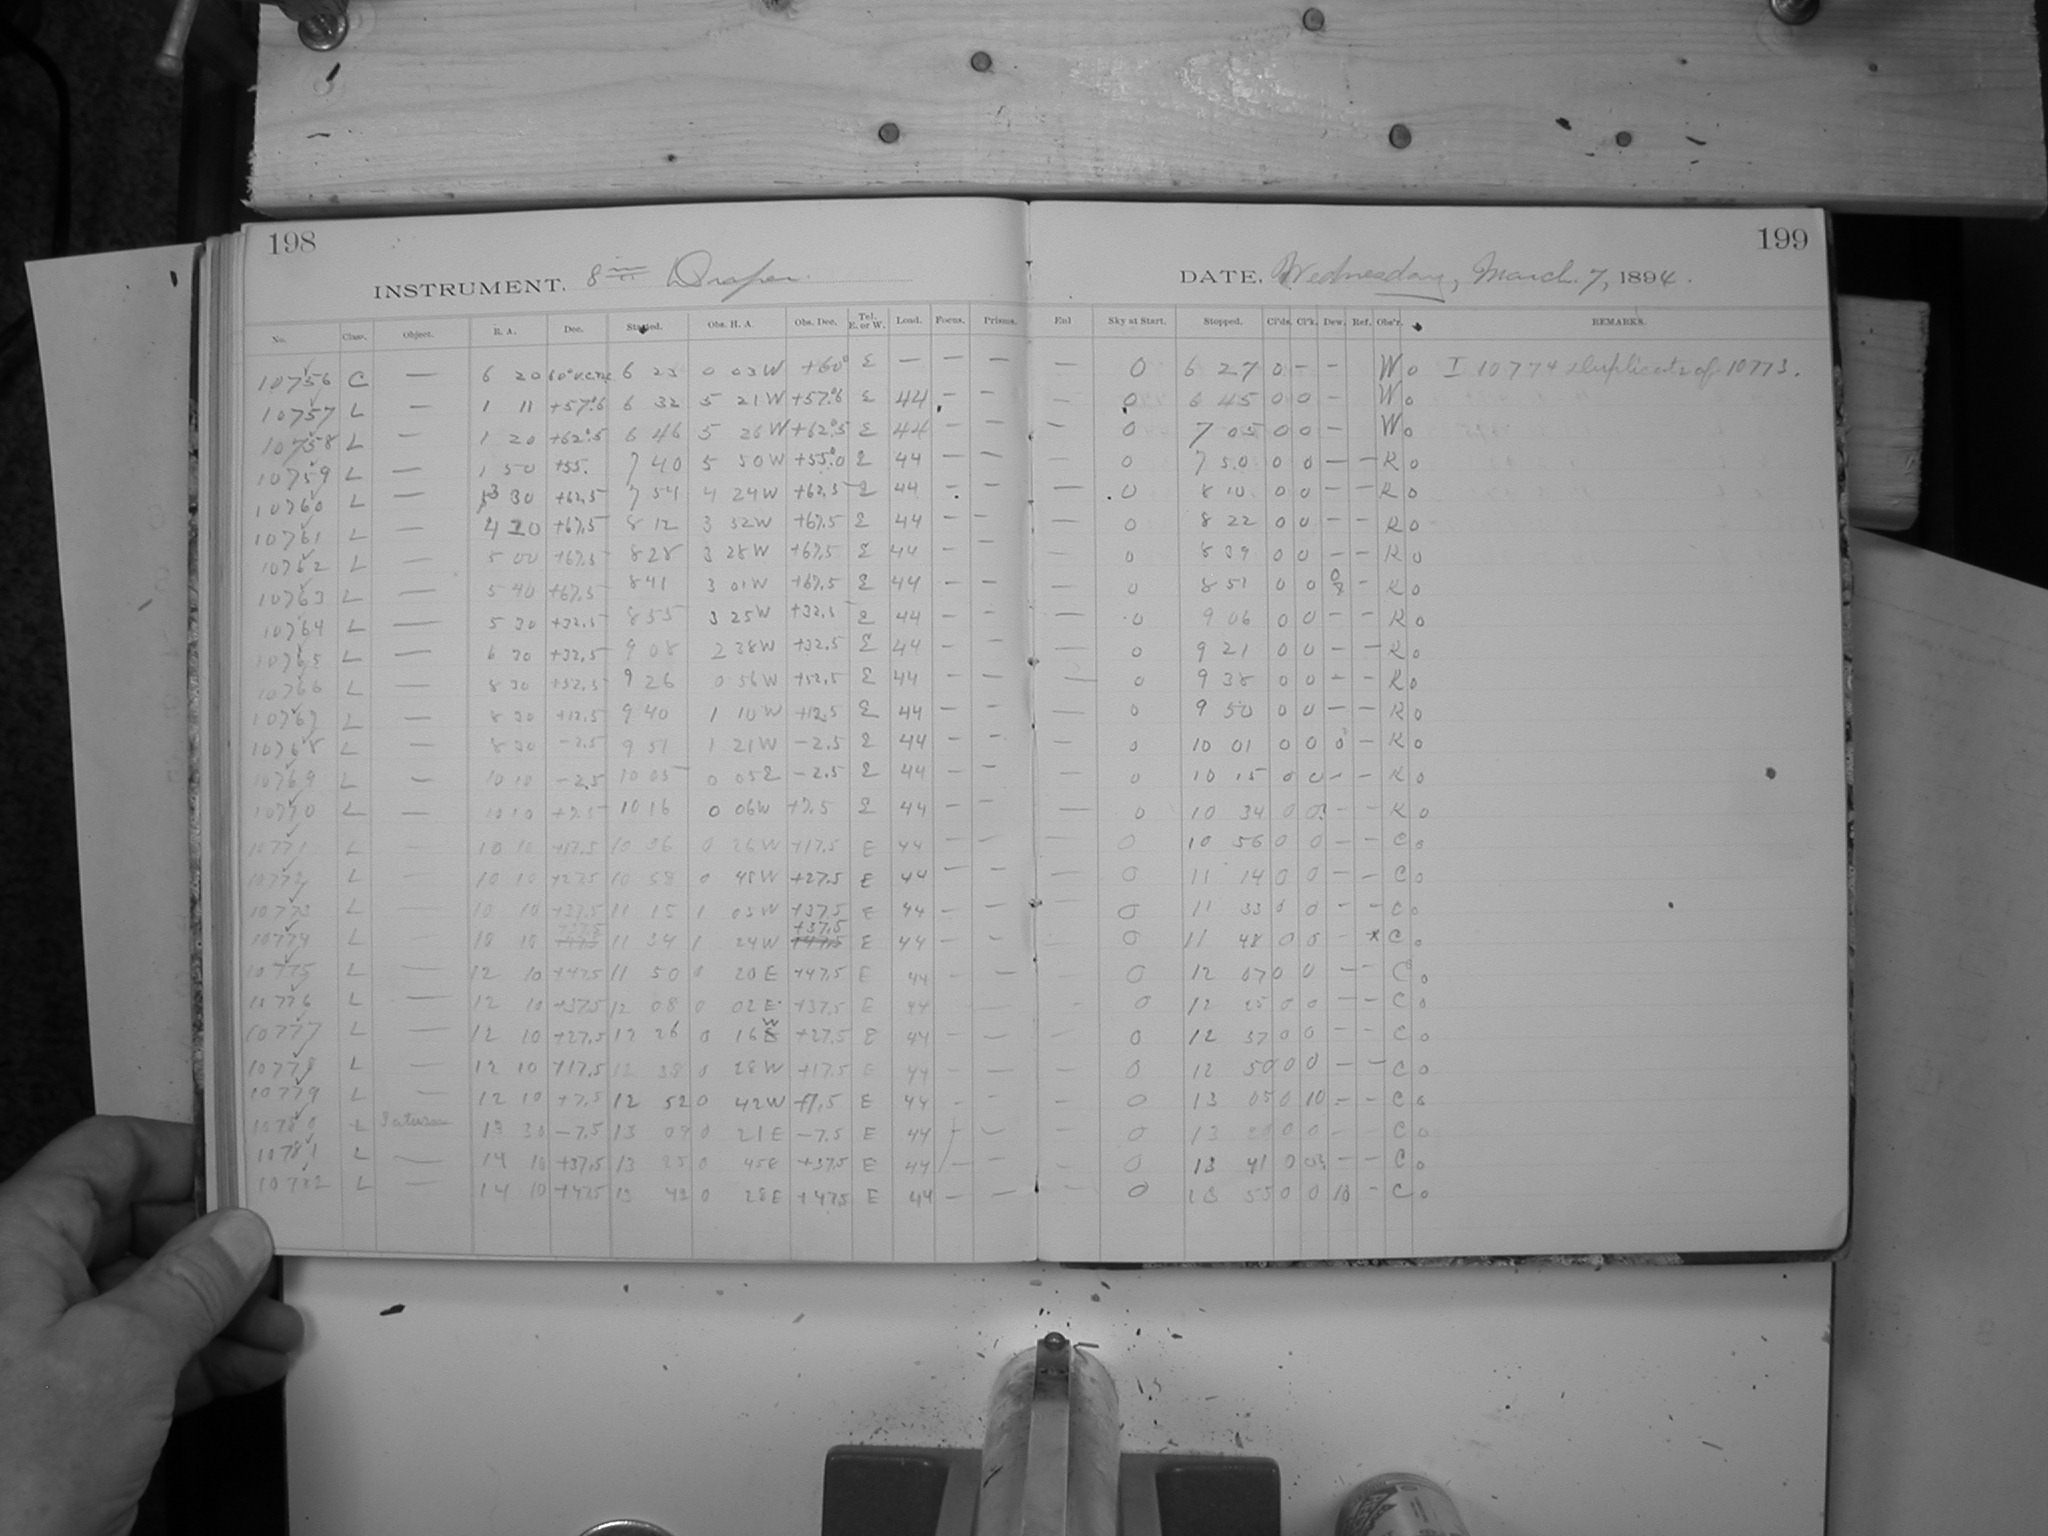 198
199
INSTRUMENT. 8 in Draper.
DATE, Wednesday, March 7, 1894.
No. Class. Object. R. A. Dec. Started. Obs. H. A. Obs. Dec. Tel. E. or W. Load. Focus. Prisms. Enl Sky at Start. Stopped. Cl'ds. Cl'k. Dew. Ref. Obs'r. REMARKS.
10756 C — 6 20 6 23 0 03 W +60° E — — — — 0 6 27 0 — — W 0 I 10774 duplicate of 10773.
10757 L — 1 11 +57.6 6 32 5 21 W +57.6 E 44 — — — 0 6 45 0 0 — W 0
10758 L — 1 20 +62.5 6 46 5 26 W +62.5 E 44 — — — 0 7 05 0 0 — W 0
10759 L — 1 50 +55. 7 40 5 50 W +55.0 E 44 — — — 0 7 50 0 0 — — K 0
10760 L — 3 30 +62.5 7 54 4 24 W +62.5 E 44 — — — 0 8 10 0 0 — — K 0
10761 L — 4 20 +67.5 8 12 3 52 W +67.5 E 44 — — — 0 8 22 0 0 — — K 0
10762 L — 5 00 +67.5 8 28 3 28 W +67.5 E 44 — — — 0 8 39 0 0 — — K 0
10763 L — 5 40 +67.5 8 41 3 01 W +67.5 E 44 — — — 0 8 51 0 0 — K 0
10764 L — 5 30 +32.5 8 55 3 25 W +32.5 E 44 — — — 0 9 06 0 0 — — K 0
10765 L — 6 30 +32.5 9 08 2 38 W +32.5 E 44 — — — 0 9 21 0 0 — — K 0
10766 L — 8 30 +52.5 9 26 0 56 W +52.5 E 44 — — — 0 9 38 0 0 — — K 0
10767 L — 8 30 +12.5 9 40 1 10 W +12.5 E 44 — — — 0 9 50 0 0 — — K 0
10768 L — 8 30 −2.5 9 51 1 21 W −2.5 E 44 — — — 0 10 01 0 0 0 — K 0
10769 L — 10 10 −2.5 10 05 0 05 E −2.5 E 44 — — — 0 10 15 0 0 — — K 0
10770 L — 10 10 +7.5 10 16 0 06 W +7.5 E 44 — — — 0 10 34 0 — — K 0
10771 L — 10 10 +17.5 10 36 0 26 W +17.5 E 44 — — — 0 10 56 0 0 — — C 0
10772 L — 10 10 +27.5 10 58 0 48 W +27.5 E 44 — — — 0 11 14 0 0 — — C 0
10773 L — 10 10 +37.5 11 15 1 05 W +37.5 E 44 — — — 0 11 33 0 0 — — C 0
10774 L — 10 10 +37.5 11 34 1 24 W +37.5 E 44 — — — 0 11 48 0 0 — x C 0
10775 L — 12 10 +47.5 11 50 0 20 E +47.5 E 44 — — — 0 12 07 0 0 — — C 0
10776 L — 12 10 +37.5 12 08 0 02 E +37.5 E 44 — — — 0 12 25 0 0 — — C 0
10777 L — 12 10 +27.5 12 26 0 16 W +27.5 E 44 — — — 0 12 37 0 0 — — C 0
10778 L — 12 10 +17.5 12 38 0 28 W +17.5 E 44 — — — 0 12 50 0 0 — — C 0
10779 L — 12 10 +7.5 12 52 0 42 W +7.5 E 44 — — — 0 13 05 0 10 — — C 0
10780 L Saturn 13 30 −7.5 13 09 0 21 E −7.5 E 44 — — — 0 13 0 0 — — C 0
10781 L — 14 10 +37.5 13 25 0 45 E +37.5 E 44 — — — 0 13 41 0 — — C 0
10782 L — 14 10 +47.5 13 42 0 28 E +47.5 E 44 — — — 0 13 55 0 0 — C 0